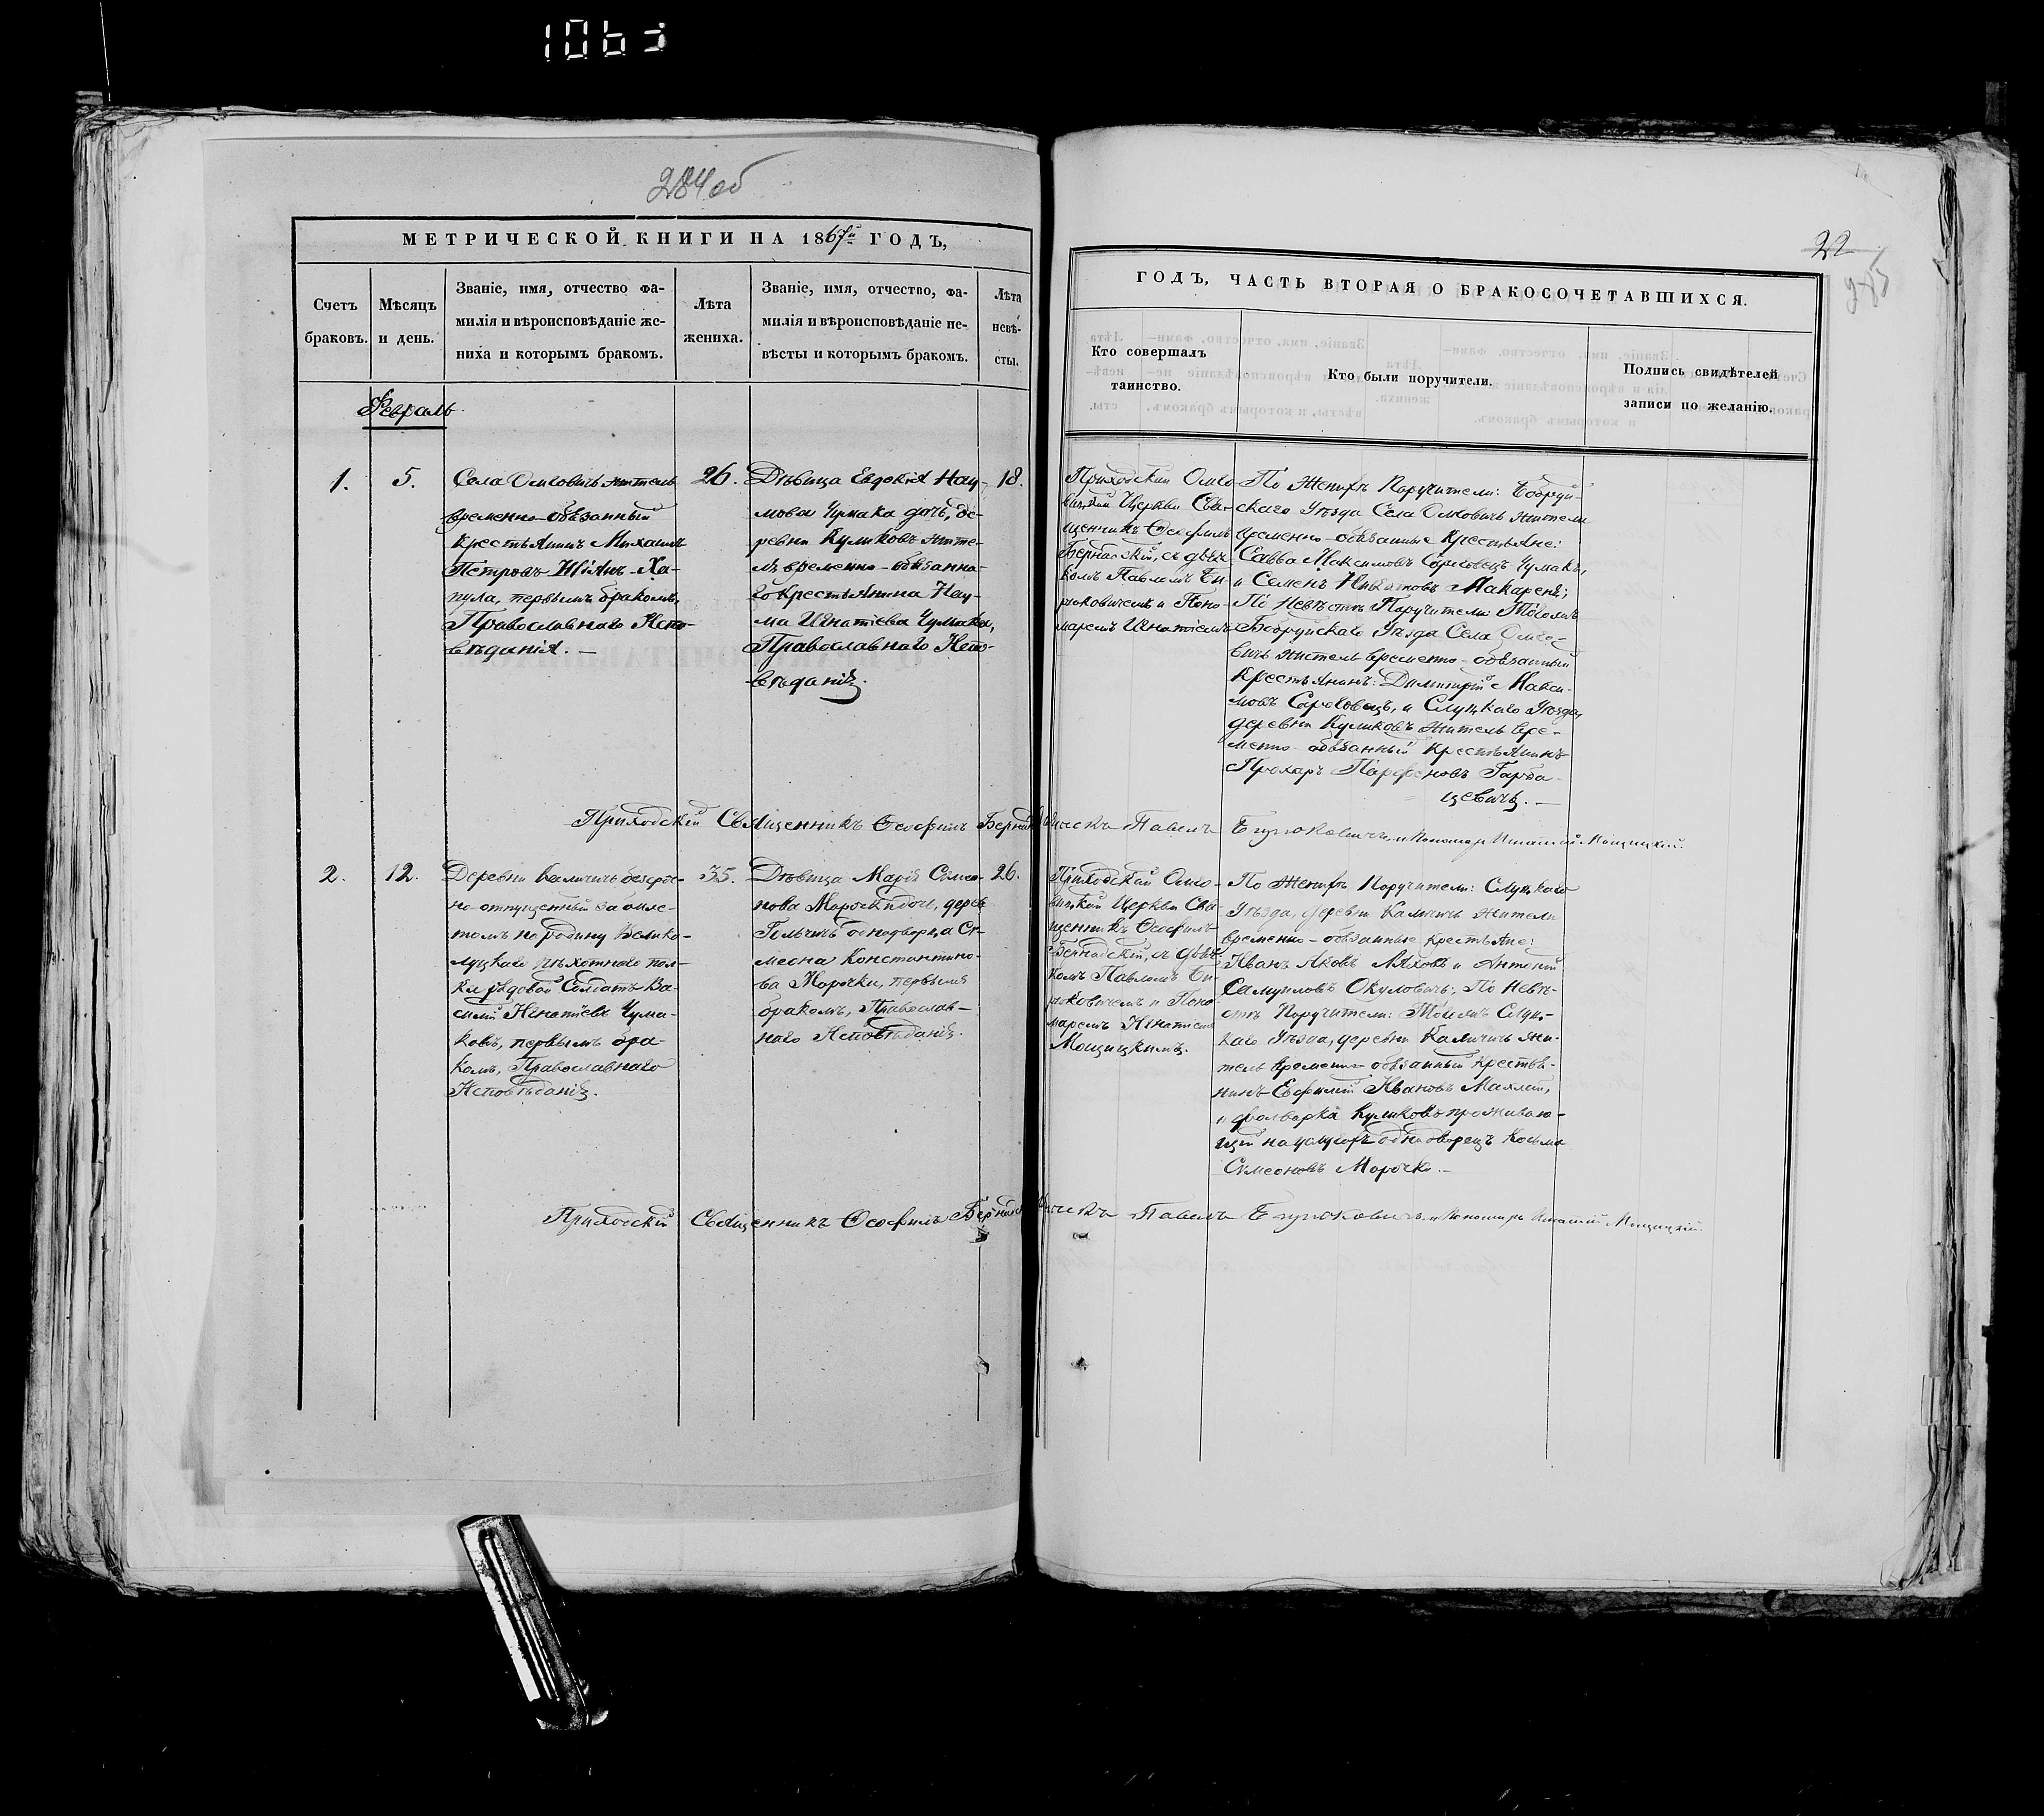 1063
284 об
МЕТРИЧЕСКОЙ КНИГИ НА 1867й ГОДЪ,
Счетъ браковъ.
Мѣсяцъ и день.
Званіе, имя, отчество фа-
милія и вѣроисповѣданіе же-
ниха и которымъ бракомъ.
Лѣта
жениха.
Званіе, имя, отчество, фа-
милія и вѣроисповѣданіе не-
вѣсты и которымъ бракомъ.
Лѣта
невѣ-
сты.
Февраль.
1.
5.
Села Омговичъ житель
временно-обязанный
крестьянинъ Михаилъ
Петровъ Ха-
пула, первымъ бракомъ,
Православнаго Испо-
вѣданія. —
26.
Дѣвица Евдокія Нау-
мова Чумака дочь, де-
ревни Куликовъ жите-
ля временно-обязанна-
го крестьянина Нау-
ма Игнатіева Чумака,
Православнаго Испо-
вѣданія.
18.
Приходскій Священникъ Ѳеофилъ
2.
12.
Деревни Калчичъ безсроч-
но-отпущенный за биле-
томъ на родину Велико-
луцкаго пѣхотнаго пол-
ка рядовой Солдатъ Ва-
силій Игнатіевъ Чума-
ковъ, первымъ бра-
комъ, Православнаго
Исповѣданія.
35.
Дѣвица Марія Симео-
нова Морочки дочь,
однодворца Си-
меона Константино-
ва Морочки, первымъ
бракомъ, Православ-
наго Исповѣданія.
26.
Приходскій Священникъ Ѳеофилъ
22
285
ГОДЪ, ЧАСТЬ ВТОРАЯ О БРАКОСОЧЕТАВШИХСЯ.
Кто совершалъ
таинство.
Кто были поручители.
Подпись свидѣтелей
записи по желанію.
Приходскій Омго-
вицкой Церкви Свя-
щенникъ Ѳеофилъ
Бернадскій, съ дьяч-
комъ Павломъ Би-
рюковичемъ и Поно-
маремъ Игнатіемъ
По Женихѣ Поручители: Бобруй-
скаго Уѣзда Села Омговичъ жители
временно-обязанные крестьяне:
Савва Максимовъ Чумакъ,
и Семенъ Макареня;
По Невѣстѣ Поручители: Тогожъ
Бобруйскаго Уѣзда Села Омго-
вичъ житель временно-обязанный
крестьянинъ: Димитрій Макси-
мовъ и Слуцкаго Уѣзда,
деревни Куликовъ житель вре-
менно-обязанный крестьянинъ
Прохоръ Парфеновъ Горба-
цевичъ. —
Павелъ Бирюковичъ, и Пономарь Игнатій Мощицкій.
Приходскій Омго-
вицкой Церкви Свя-
щенникъ Ѳеофилъ
Бернадскій, съ дьяч-
комъ Павломъ Би-
рюковичемъ и Поно-
маремъ Игнатіемъ
Мощицкимъ.
По Женихѣ Поручители: Слуцкаго
Уѣзда, деревни Калчичъ жители
временно-обязанные крестьяне:
Иванъ Ляховъ и Антоній
Самуиловъ Окуловичъ; По Невѣ-
стѣ Поручители: Тогожъ Слуц-
каго Уѣзда, деревни Калчичъ жи-
тель временно-обязанный крестья-
нинъ Евфимій Ивановъ
и фольварка Куликовъ проживаю-
щій однодворецъ Козьма
Симеоновъ Морочко. —
Павелъ Бирюковичъ, и Пономарь Игнатій Мощицкій.